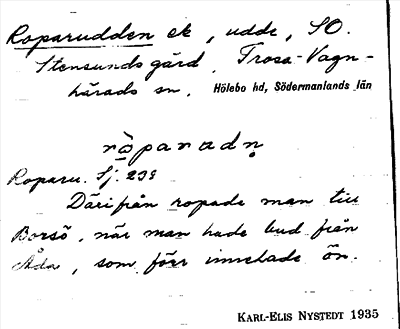 Roparudden ek, udde, SO.
Stensunds gård, Trosa-Vagn-
härads sn. Hölebo hd, Södermanlands län
ròparadn̥
Roparu. Sj. 233
Därifrån ropade man till
Borsö, när man hade bud från
Åda, som förr innehade ön.
KARL-ELIS NYSTEDT 1935